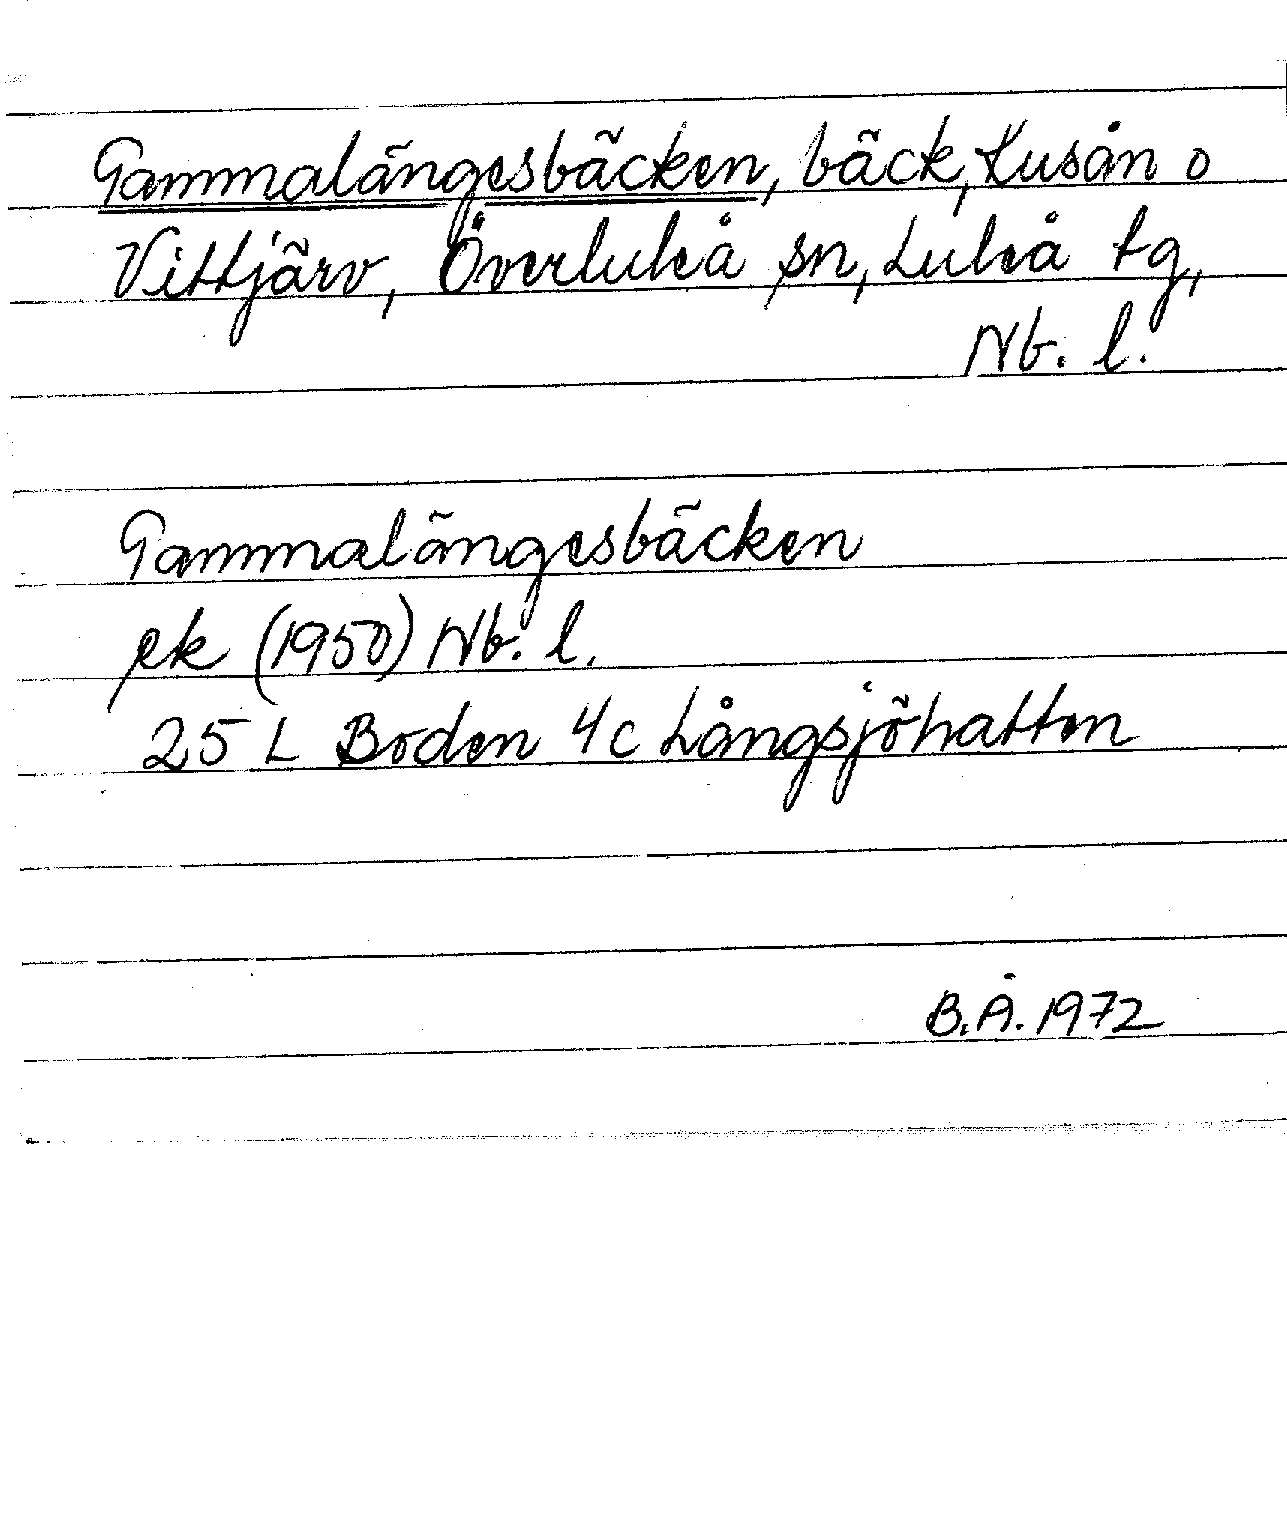 Gammalängesbäcken, bäck, Kusån o
Vittjärv, Överluleå sn, Luleå tg,
Nb. l.
Gammalängesbäcken
ek (1950) Nb. l.
25 L Boden 4c Långsjöhatten
B.Å. 1972